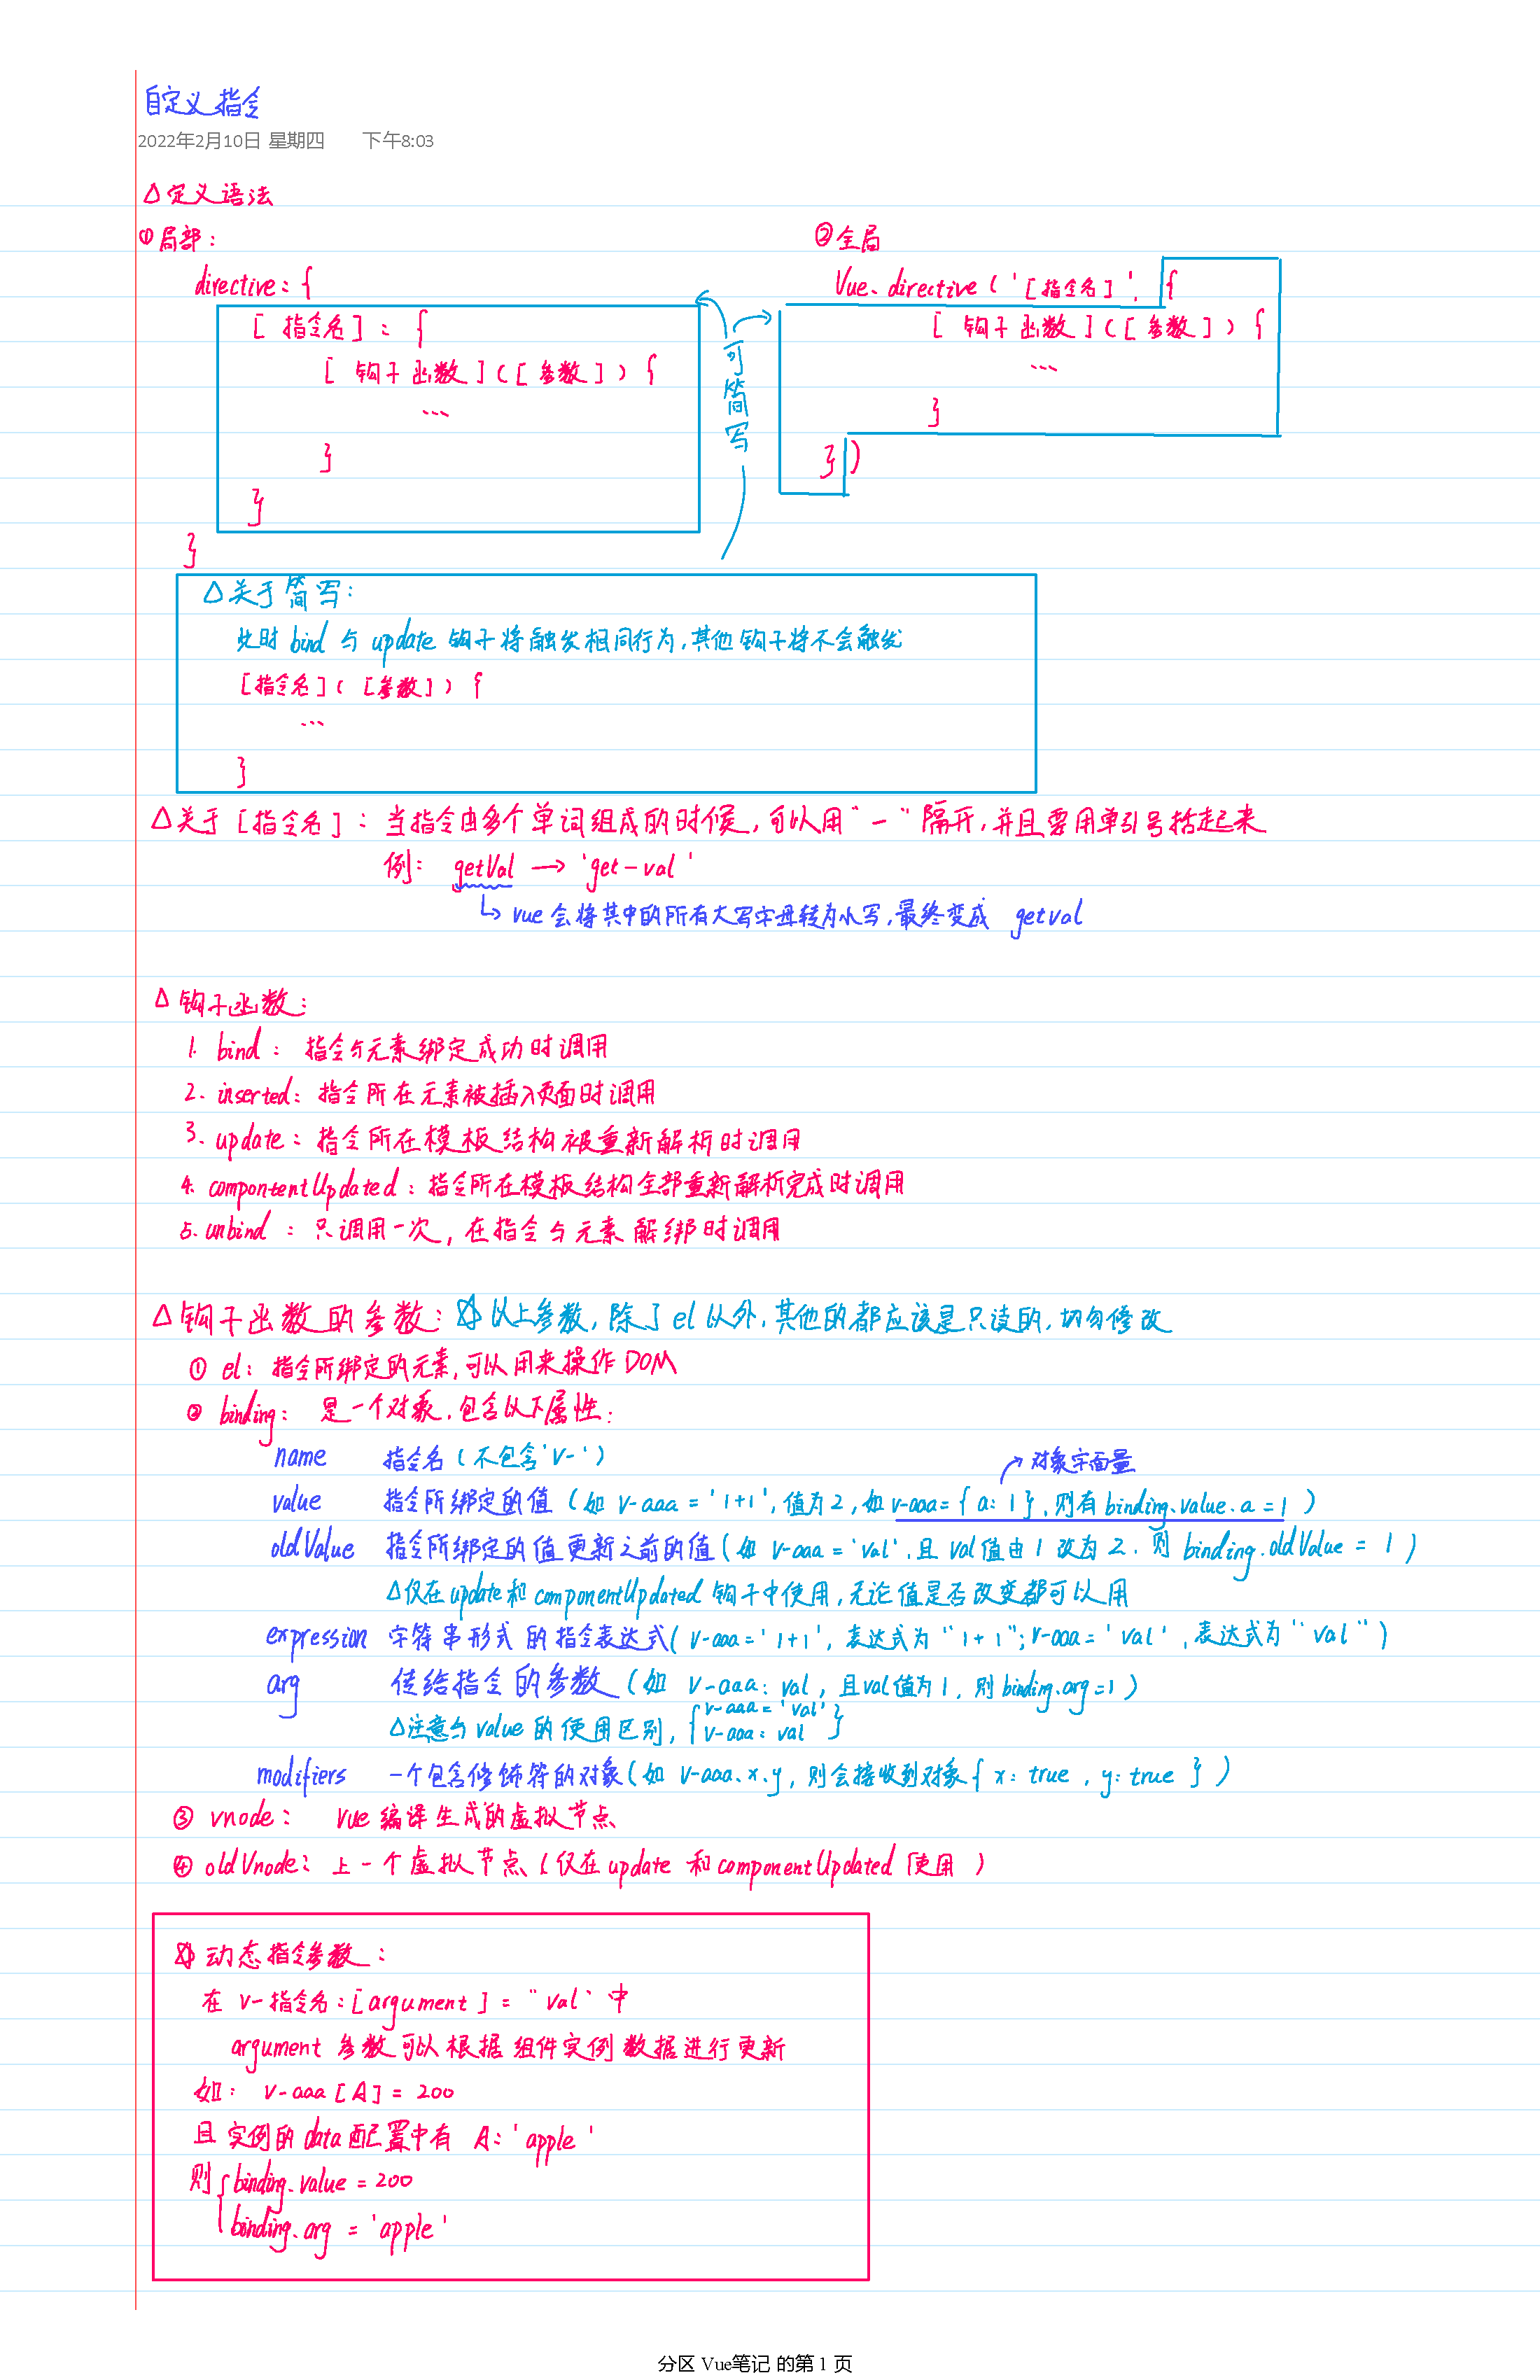 自定义指令
2022年2月10日 星期四 下午8:03
△定义语法
①局部：
directive：{
[ 指令名 ]：{
[ 钩子函数 ]([ 参数 ]) {
...
}
}
}
②全局
Vue.directive ( '[ 指令名 ]', {
[ 钩子函数 ]([ 参数 ]) {
...
}
})
可简写
△关于简写：
此时 bind 与 update 钩子将触发相同行为,其他钩子将不会触发
[指令名]( [参数]) {
...
}
△关于 [指令名]：当指令由多个单词组成的时候,可以用"-"隔开,并且要用单引号括起来
例： getVal → 'get-val'
↳ vue会将其中的所有大写字母转为小写,最终变成 getval
△ 钩子函数：
1. bind： 指令与元素绑定成功时调用
2. inserted：指令所在元素被插入页面时调用
3. update：指令所在模板结构被重新解析时调用
4. compontentUpdated：指令所在模板结构全部重新解析完成时调用
5. unbind ：只调用一次，在指令与元素解绑时调用
△ 钩子函数的参数： 以上参数，除了el以外,其他的都应该是只读的,切勿修改
① el：指令所绑定的元素,可以用来操作DOM
② binding： 是一个对象,包含以下属性：
name 指令名（不包含'v-'）
→ 对象字面量
value 指令所绑定的值（如 v-aaa = '1+1',值为2,如v-aaa={a: 1},则有binding.value.a=1 ）
oldValue 指令所绑定的值更新之前的值（如 v-aaa='val',且 val值由1改为2,则 binding.oldValue = 1 ）
△仅在update和componentUpdated 钩子中使用,无论值是否改变都可以用
expression 字符串形式的指令表达式( v-aaa='1+1', 表达式为"1+1";v-aaa='val',表达式为"val")
arg 传给指令的参数（如 v-aaa：val，且val值为1，则binding.arg=1 ）
△注意与value的使用区别,{ v-aaa='val'
v-aaa：val }
modifiers 一个包含修饰符的对象(如 v-aaa.x.y，则会接收到对象{ x：true , y：true })
③ vnode： Vue编译生成的虚拟节点
④ oldVnode：上一个虚拟节点（仅在update 和componentUpdated使用 ）
动态指令参数：
在 v-指令名：[argument] = "val" 中
argument 参数可以根据组件实例数据进行更新
如： v-aaa [A] = 200
且实例的 data配置中有 A：'apple'
则{ binding.value = 200
binding.arg = 'apple'
分区 Vue笔记 的第 1 页